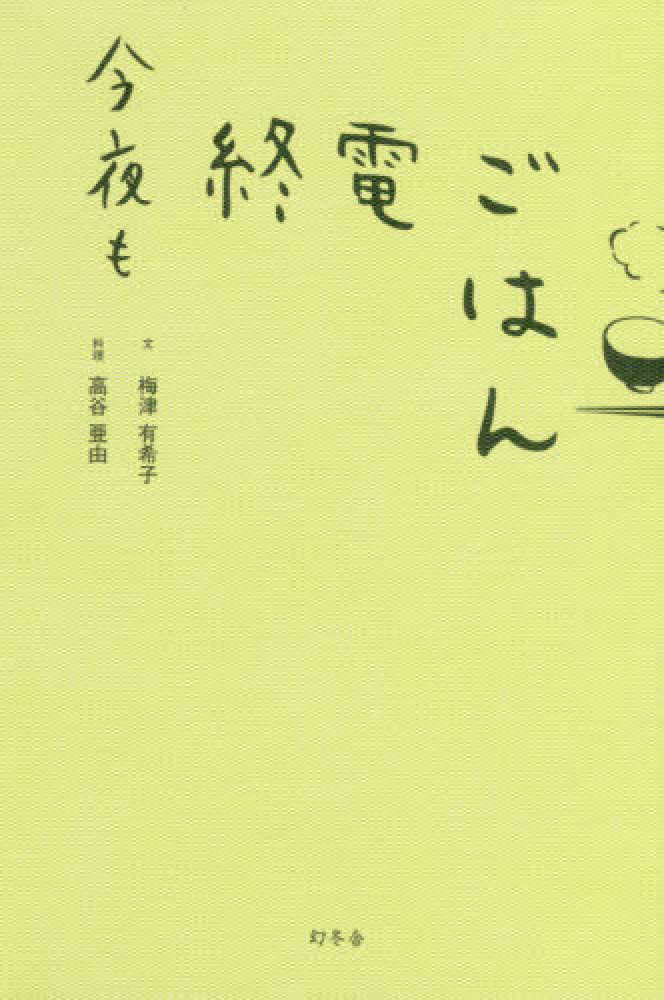 今夜も
終電
ごはん
文 梅津 有希子
料理 高谷 亜由
幻冬舎